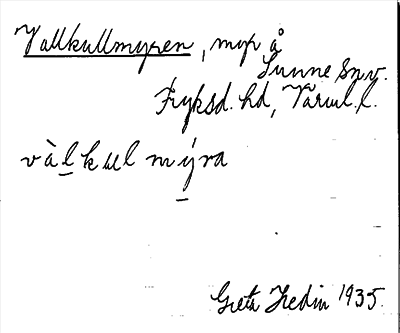 Vallkullmyren, myr å
Sunne Sn v.
Fryksd. hd, Värml. l.
vàlkulmýra
Greta Hedin 1935.